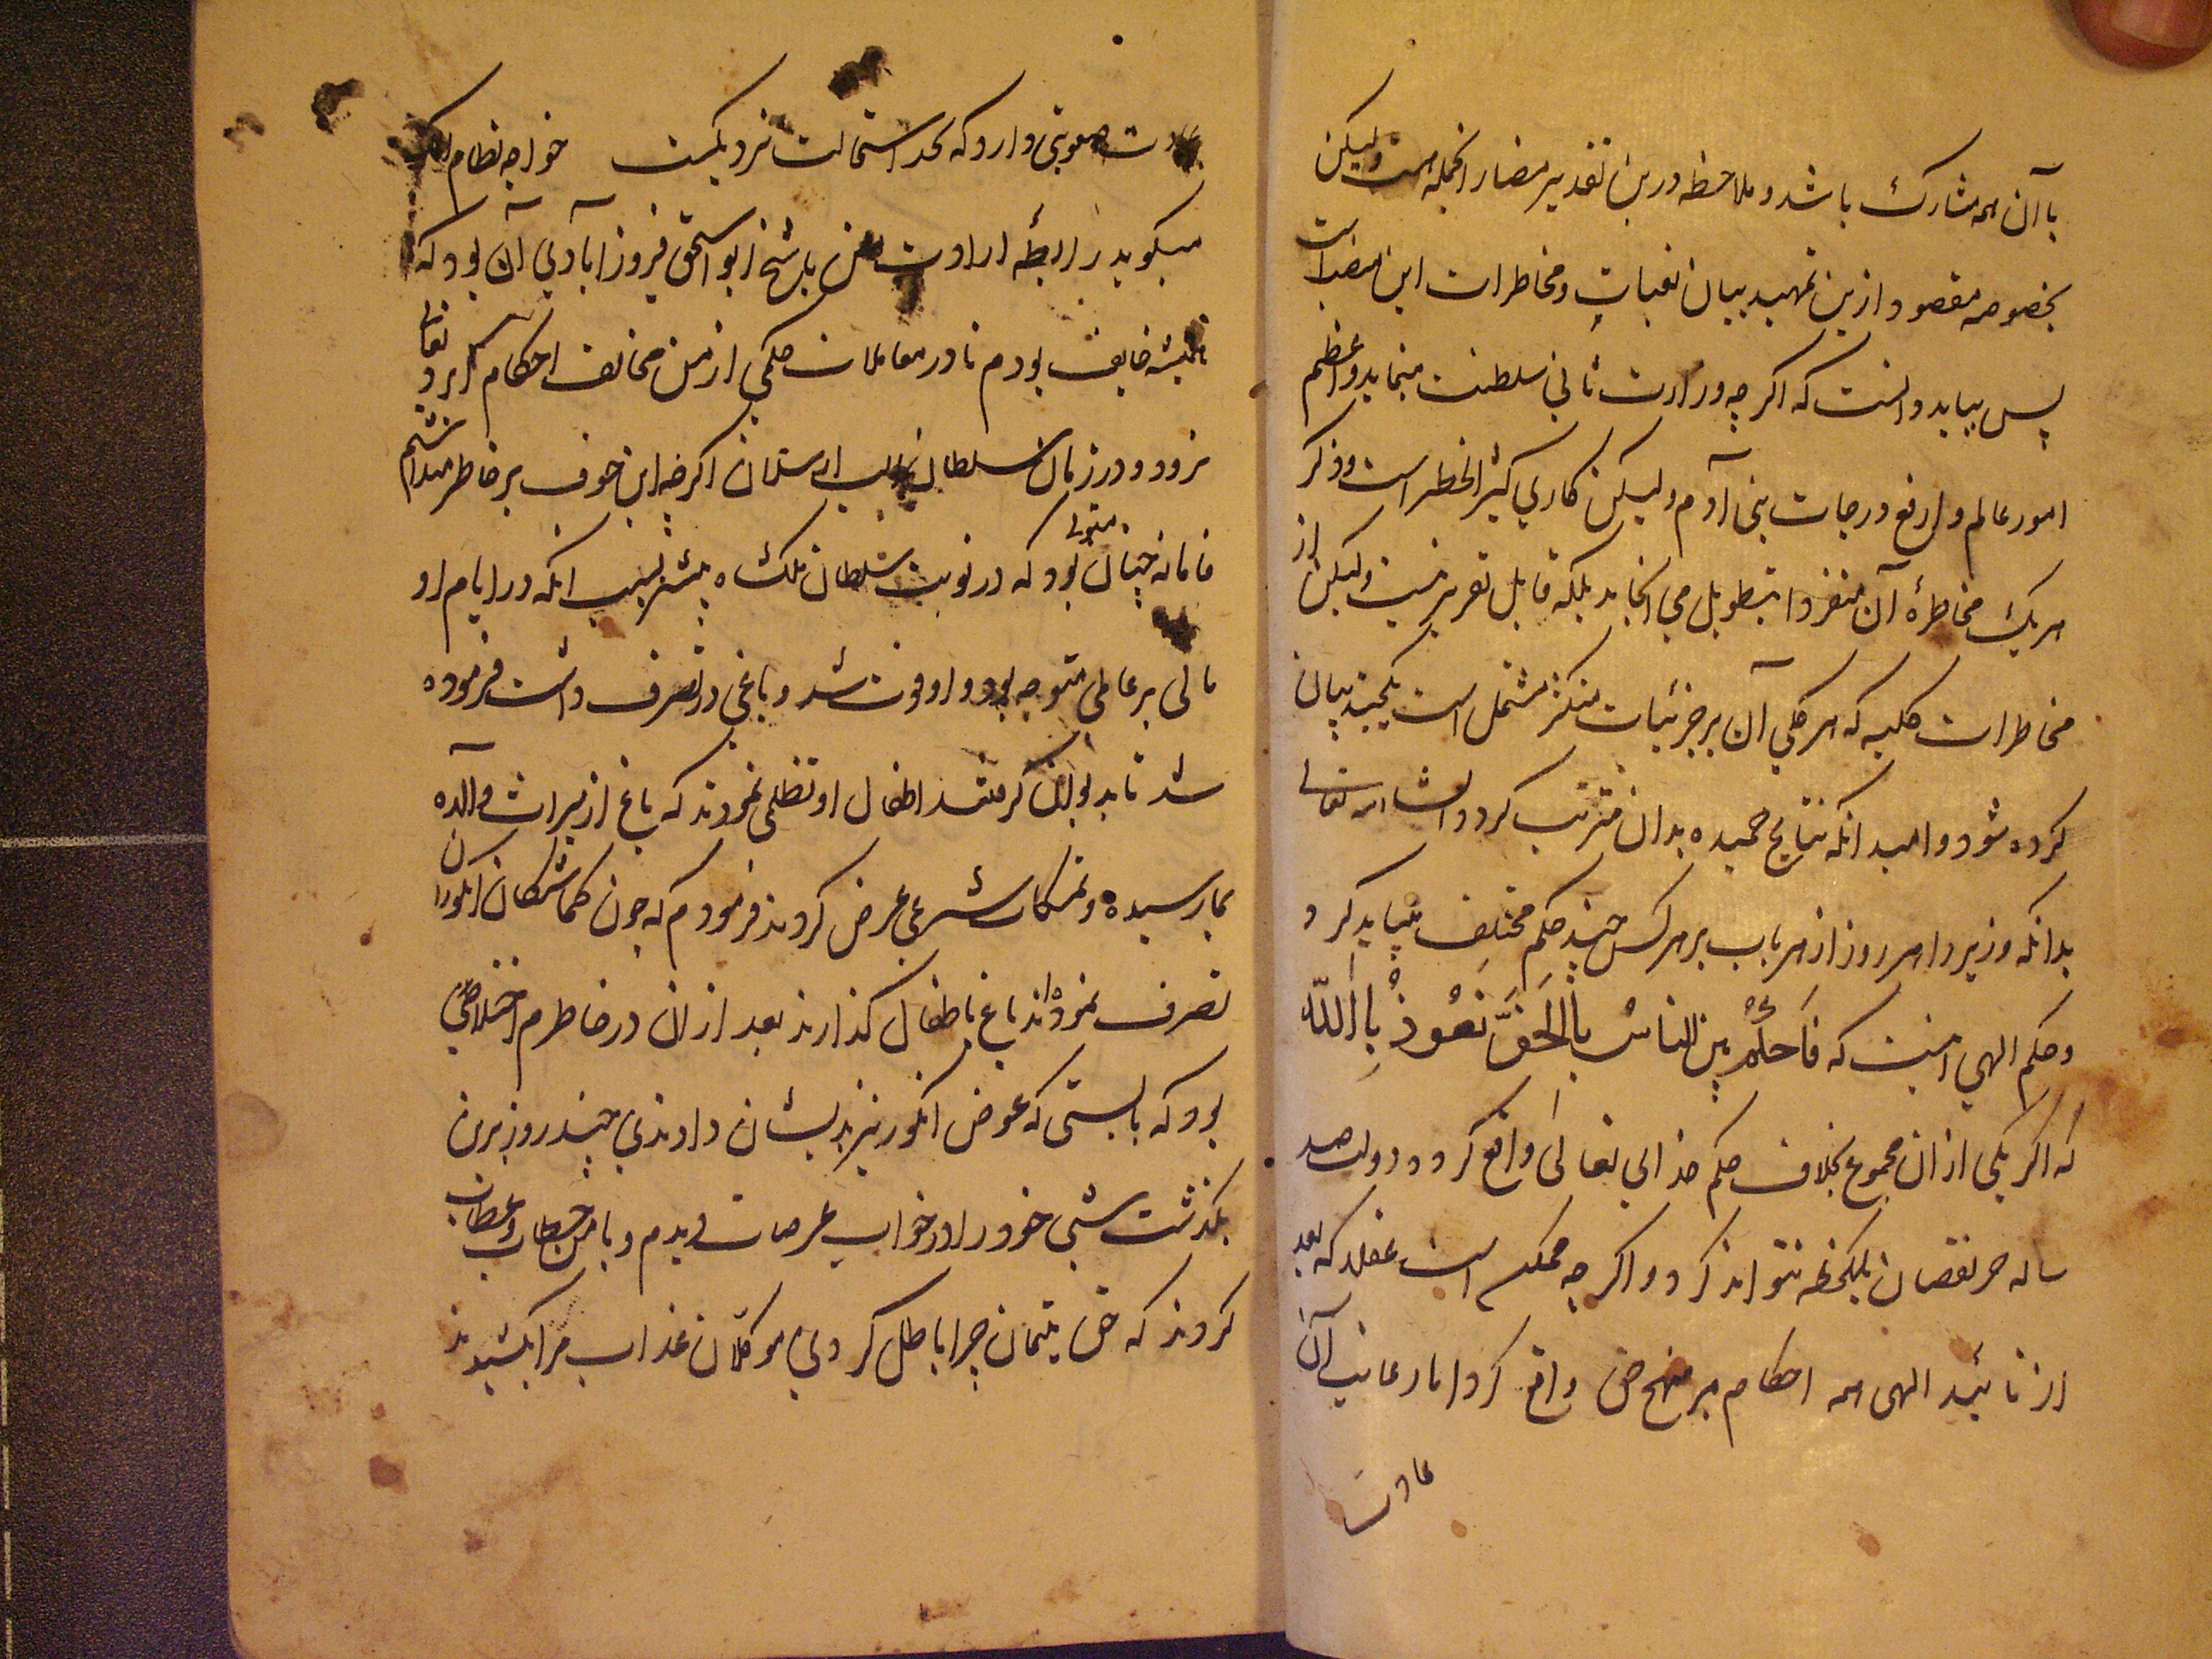 با آن همه مشارك باشد و ملاحظه درین تقدیر مضار انجمله است ولیکن
بخصوصه مقصود ازین تمهید بیان تعبات و مخاطرات این منصب است
پس بباید دانست که اکرچه وزارت ثانی سلطنت مینماید و اعظم
امور عالم و ارفع درجات بنی آدم ولیکن کاری کثیر الخطر است و ذکر
هر یك مخاطرهٔ آن منفردا بتطویل می انجامد بلکه قابل تقریر نیست ولیکن از
مخاطرات کلیه که هر کلی آن بر جزئیات متکثر مشتمل است یکچند بیان
کرده شود و امید انکه نتایج حمیده بدان مترتب کردد انشا الله تعالی
بدانکه وزیر را هر روز از هر باب بر هر کس چند حکم مختلف میباید کرد
و حکم الهی اینست که فَاحکُم بین الناس بِالحَقّ نَعُوذُ بِاللّه
که اکر یکی ازان مجموع بخلاف حکم خدای تعالی واقع کردد دولت صد
ساله جبر نقصان یکلحظه نتواند کرد و اکرچه ممکن است عقلا که بعد
از تائید الهی همه احکام بر منهج حق واقع کردد اما رعایت آن
عادت
عادت صعوبتی دارد که بحد استحالت نزدیکست خواجه نظام الملك
میکوید رابطهٔ ارادت من بشیخ ابو اسحق فیروزآبادی آن بود که
همیشه خایف بودم تا در معاملات حکمی از من مخالف احکام ایزد تعالی
نرود و در زمان سلطان الب ارسلان اکرچه این خوف بر خاطر میداشتم
فامانه چنان مستولی بود که در نوبت سلطان ملکشاه بیشتر بسبب انکه در ایام او
مالی بر عاملی متوجه بود و او فوت شد و باغی در تصرف داشت فرموده
شد تا بدیوان کرفتند اطفال او تظلم نمودند که باغ از میراث والده
بما رسیده و تمسکات شرعی عرض کردند فرمودم که چون کماشتکان انکور ان
تصرف نموده‌اند باغ باطفال کذارند بعد ازان در خاطرم اختلاجی
بود که بایستی که عوض انکور نیز بدیشان دادندی چند روز برین
بکذشت شبی خود را در خواب در عرصات دیدم و با من خطاب و عتاب
کردند که حق یتیمان چرا باطل کردی موکلان عذاب مرا بکشیدند